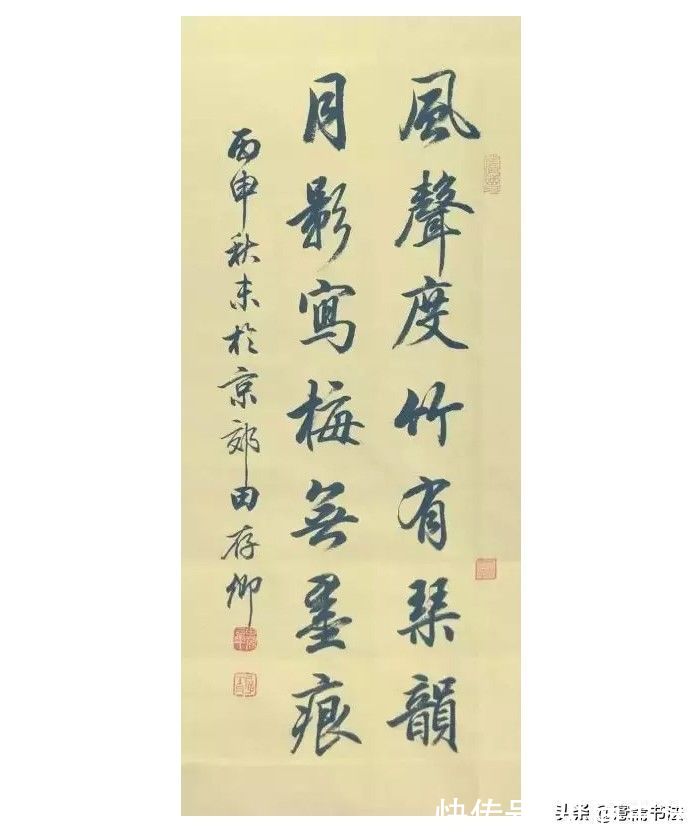 風聲度竹有琹韻
月影寫梅無墨痕
丙申秋末於京郊田存卿
快传号
头条@
书法